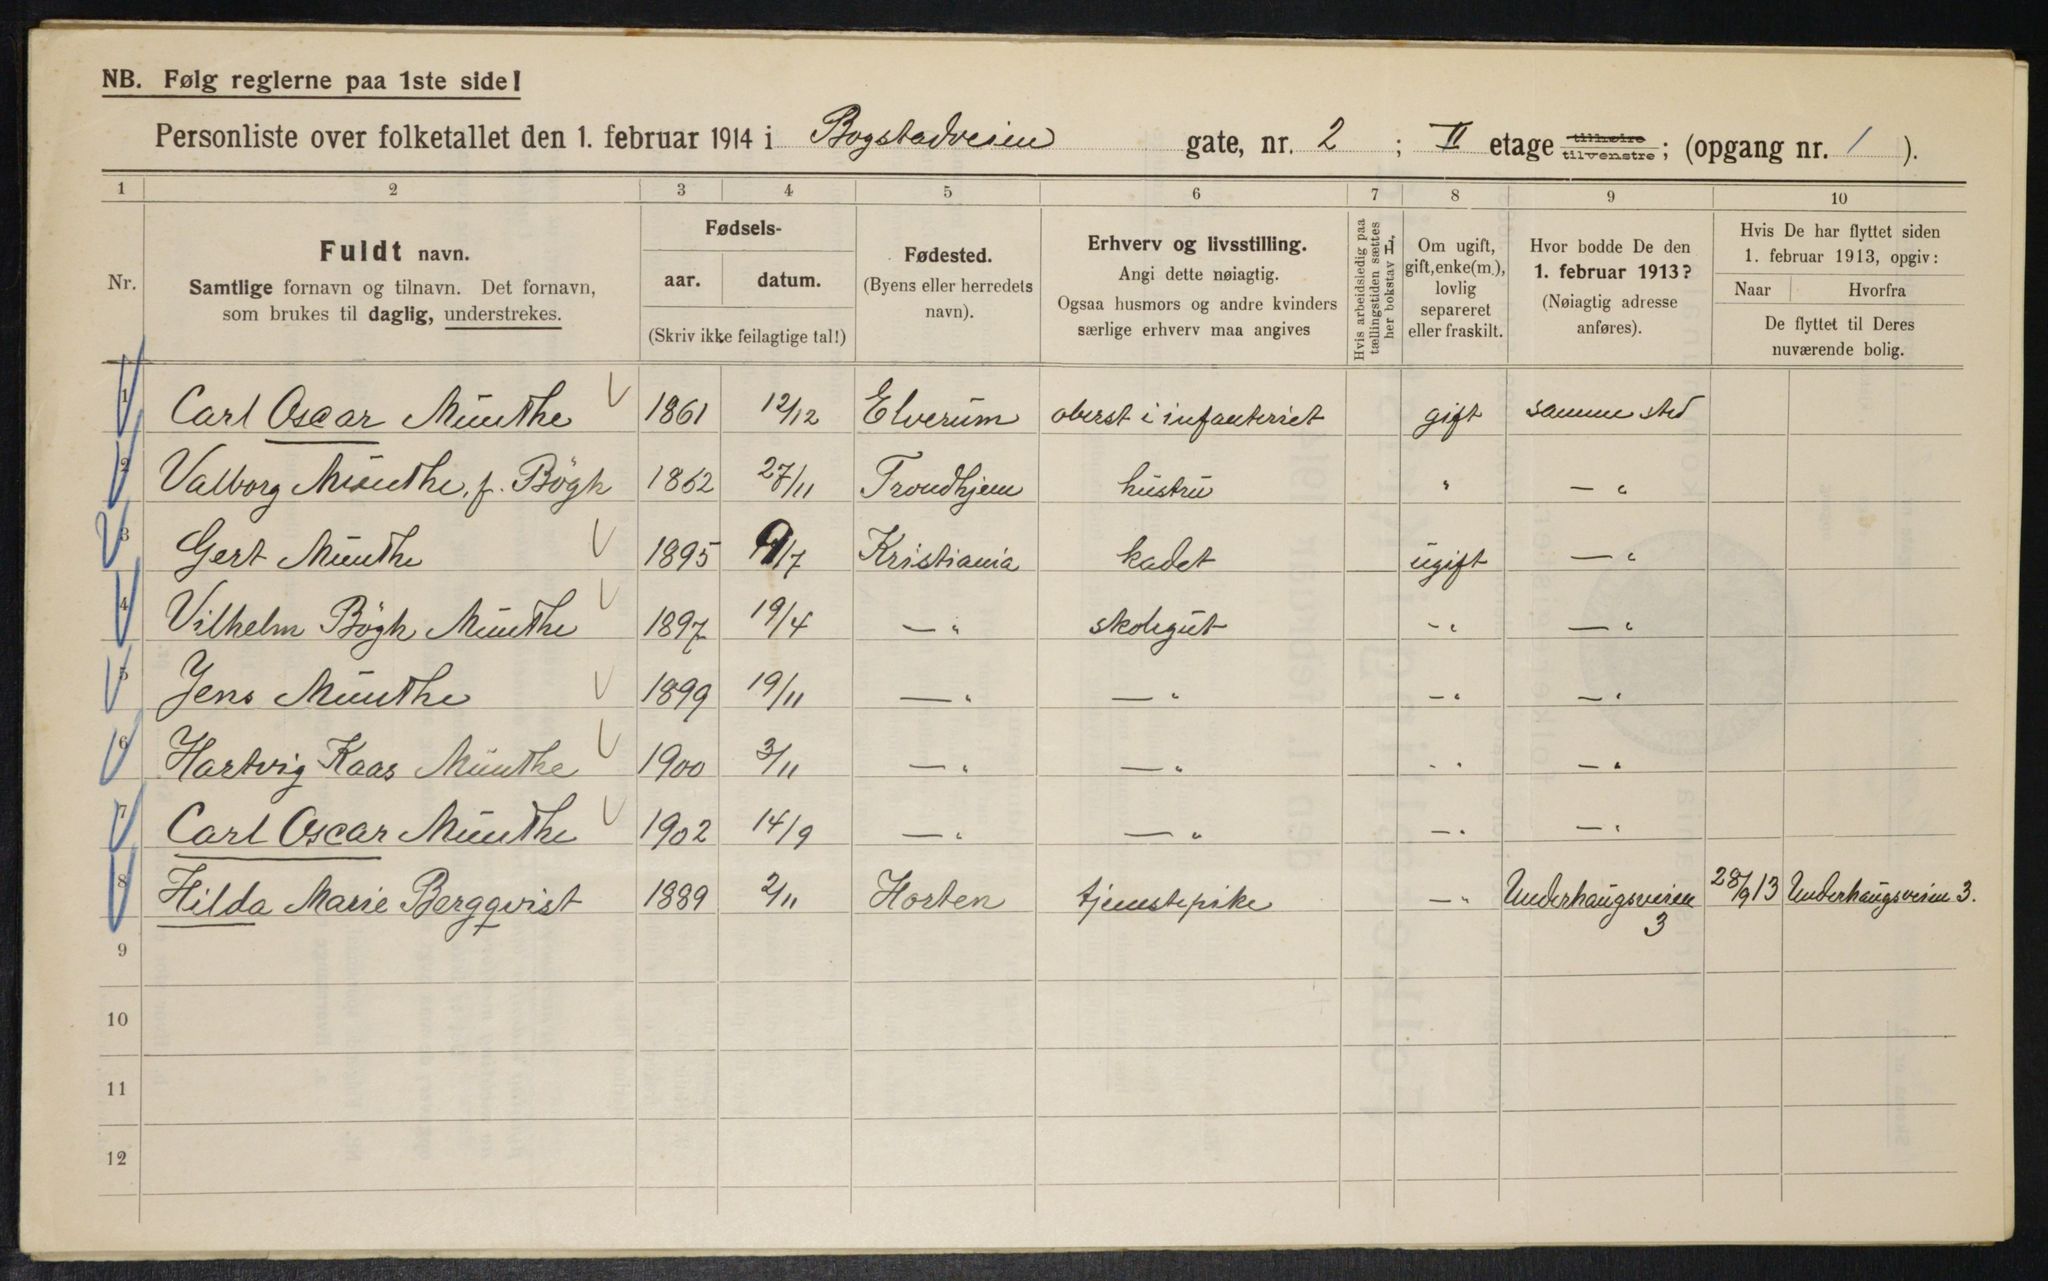 NB. Følg reglerne paa 1ste side!
Personliste over folketallet den 1. februar 1914 i Bogstadveien gate, nr. 2 ; II etage tilhøire tilvenstre ; (opgang nr. 1 ).
1 2 3 4 5 6 7 8 9 10
Nr.
Fuldt navn.
Samtlige fornavn og tilnavn. Det fornavn,
som brukes til daglig, understrekes.
Fødsels-
aar. datum.
(Skriv ikke feilagtige tal!)
Fødested.
(Byens eller herredets
navn).
Erhverv og livsstilling.
Angi dette nøiagtig.
Ogsaa husmors og andre kvinders
særlige erhverv maa angives
Hvis arbeidsledig paa
tællingstiden sættes
her bokstav L,
Om ugift,
gift, enke(m.),
lovlig
separeret
eller fraskilt.
Hvor bodde De den
1. februar 1913?
(Nøiagtig adresse
anføres).
Hvis De har flyttet siden
1. februar 1913, opgiv:
Naar Hvorfra
De flyttet til Deres
nuværende bolig.
1 Carl Oscar Munthe 1861 12/12 Elverum oberst i infanteriet gift samme sted
2 Valborg Munthe, f. Bögh 1862 27/11 Trondhjem hustru " — "
3 Gert Munthe 1895 9/7 Kristiania kadet ugift — "
4 Vilhelm Bögh Munthe 1897 19/4 — " skolegut — " — "
5 Jens Munthe 1899 19/11 — " — " — " — "
6 Hartvig Kaas Munthe 1900 3/11 — " — " — " — "
7 Carl Oscar Munthe 1902 14/9 — " — " — " — "
8 Hilda Marie Bergqvist 1889 2/11 Horten tjenestepike — " Underhaugsveien 3 28/9 13 Underhaugsveien 3.
9
10
11
12